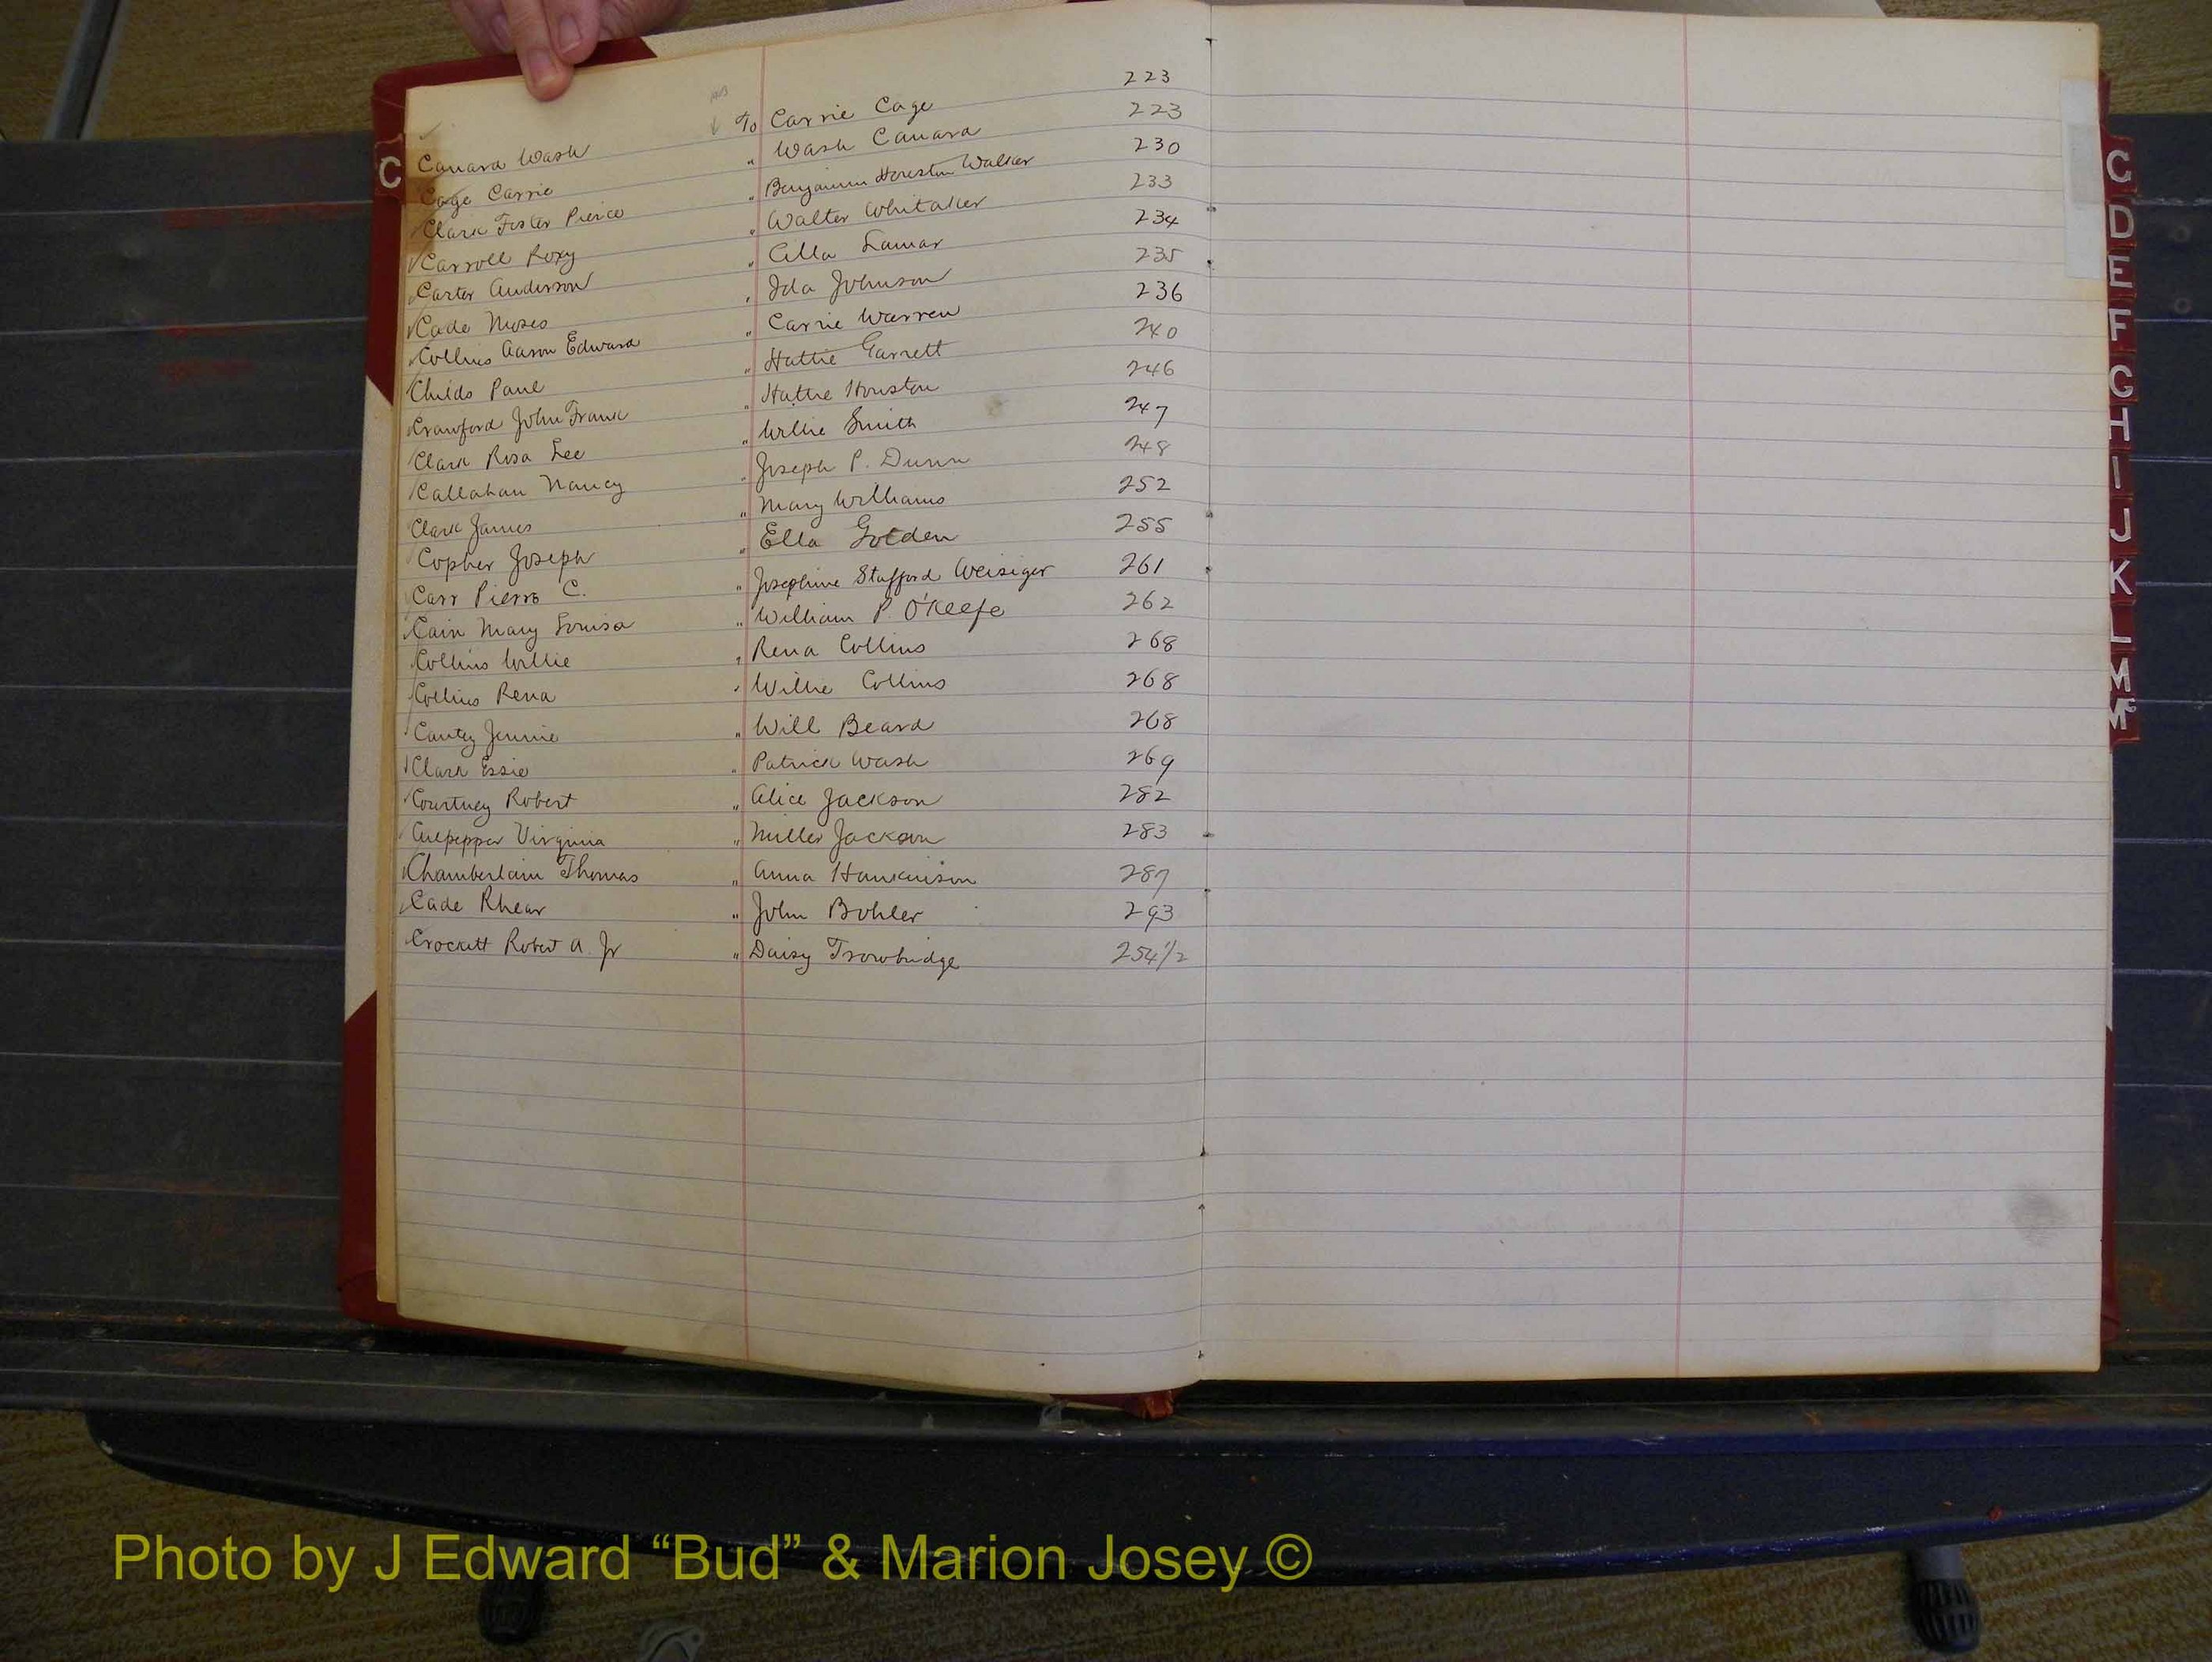 Canard Wash To Carrie Cage 223
Cage Carrie " Wash Canard 223
Clark Foster Pierce " Benjamin Houston Walker 230
Carroll Roxy " Walter Whitaker 233
Carter Anderson " Ella Lamar 234
Cade Moses " Ida Johnson 235
Collins Aaron Edward " Carrie Warren 236
Childs Paul " Hattie Garrett 240
Crawford John Frank " Hattie Houston 246
Clark Rosa Lee " Willie Smith 247
Callahan Nancy " Joseph P. Dunn 248
Clark James " Mary Williams 252
Copher Joseph " Ella Golden 255
Carr Pierre C. " Josephine Stafford Weisiger 261
Cain Mary Louisa " William P. O'Keefe 262
Collins Willie " Rena Collins 268
Collins Rena " Willie Collins 268
Cantey Jennie " Will Beard 268
Clark Essie " Patrick Wash 269
Courtney Robert " Alice Jackson 282
Culpepper Virginia " Miller Jackson 283
Chamberlain Thomas " Anna Hankinson 287
Cade Rhear " John Bohler 293
Crockett Robert A. Jr " Daisy Trowbridge 254 1/2
C
C
D
E
F
G
H
I
J
K
L
M
Mc
Photo by J Edward “Bud” & Marion Josey ©